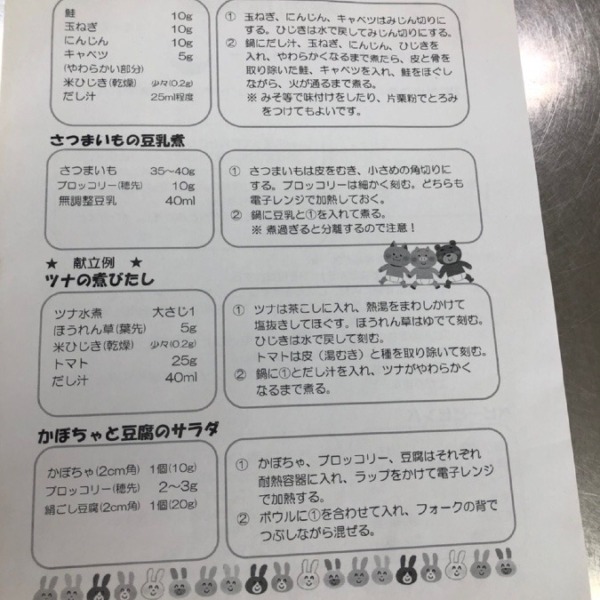 鮭 10g
玉ねぎ 10g
にんじん 10g
キャベツ 5g
(やわらかい部分)
米ひじき(乾燥) 少々(0.2g)
だし汁 25ml程度
① 玉ねぎ、にんじん、キャベツはみじん切りに
する。ひじきは水で戻してみじん切りにする。
② 鍋にだし汁、玉ねぎ、にんじん、ひじきを
入れ、やわらかくなるまで煮たら、皮と骨を
取り除いた鮭、キャベツを入れ、鮭をほぐし
ながら、火が通るまで煮る。
※ みそ等で味付けをしたり、片栗粉でとろみ
をつけてもよいです。
さつまいもの豆乳煮
さつまいも 35～40g
ブロッコリー(穂先) 10g
無調整豆乳 40ml
① さつまいもは皮をむき、小さめの角切りに
する。ブロッコリーは細かく刻む。どちらも
電子レンジで加熱しておく。
② 鍋に豆乳と①を入れて煮る。
※ 煮過ぎると分離するので注意！
★ 献立例 ★
ツナの煮びたし
ツナ水煮 大さじ1
ほうれん草(葉先) 5g
米ひじき(乾燥) 少々(0.2g)
トマト 25g
だし汁 40ml
① ツナは茶こしに入れ、熱湯をまわしかけて
塩抜きしてほぐす。ほうれん草はゆでて刻む。
ひじきは水で戻して刻む。
トマトは皮（湯むき）と種を取り除いて刻む。
② 鍋に①とだし汁を入れ、ツナがやわらかく
なるまで煮る。
かぼちゃと豆腐のサラダ
かぼちゃ(2cm角) 1個(10g)
ブロッコリー(穂先) 2～3g
絹ごし豆腐(2cm角) 1個(20g)
① かぼちゃ、ブロッコリー、豆腐はそれぞれ
耐熱容器に入れ、ラップをかけて電子レンジ
で加熱する。
② ボウルに①を合わせて入れ、フォークの背で
つぶしながら混ぜる。